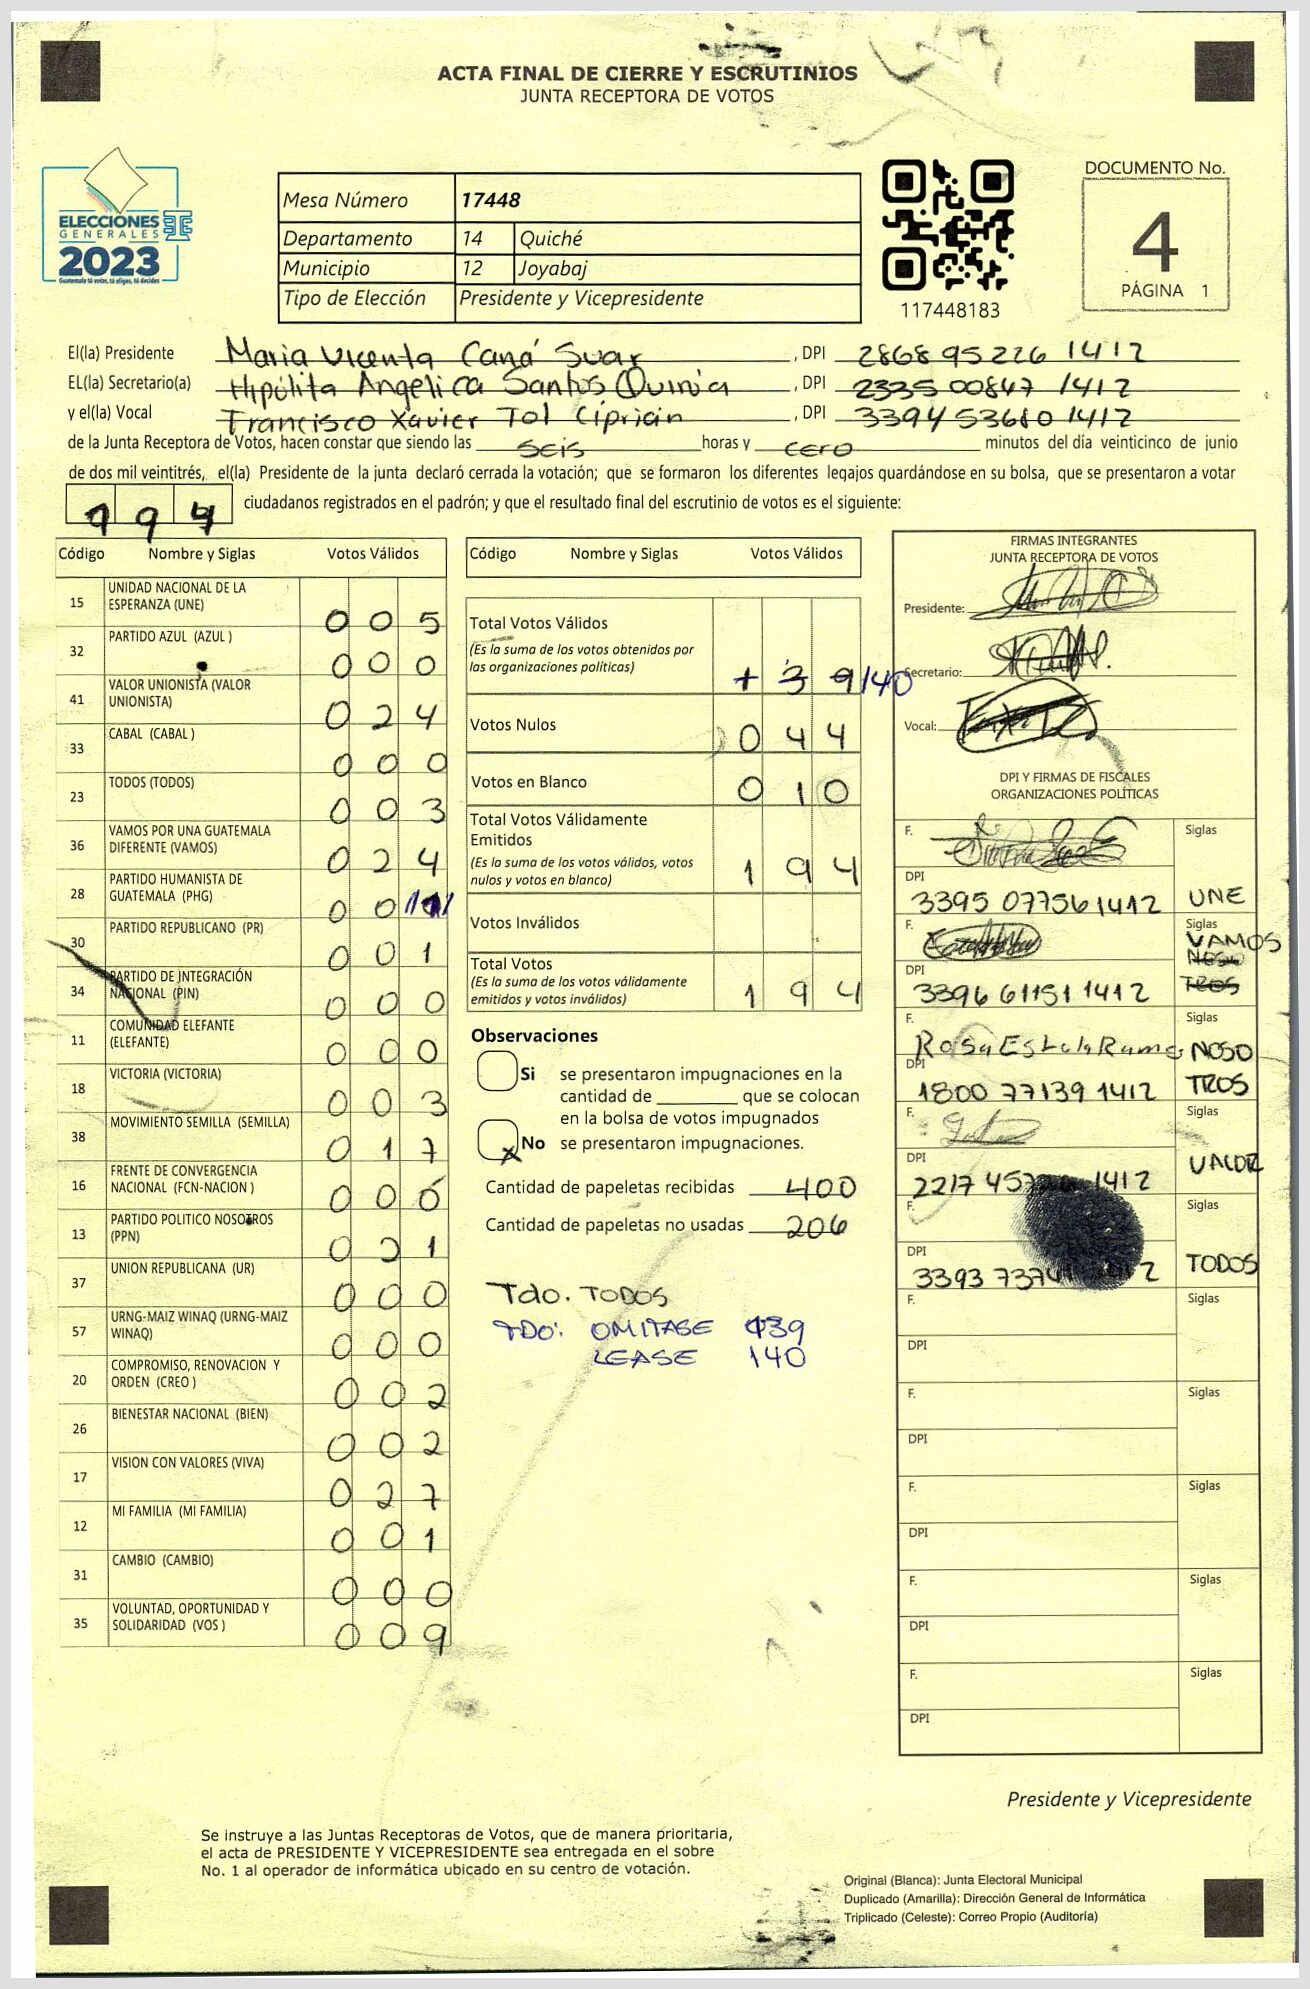 ACTA FINAL DE CIERRE Y ESCRUTINIOS
JUNTA RECEPTORA DE VOTOS
ELECCIONES
GENERALES
2023
Guatemala tú votas, tú eliges, tú decides
Mesa Número 17448
Departamento 14 Quiché
Municipio 12 Joyabaj
Tipo de Elección Presidente y Vicepresidente
117448183
DOCUMENTO No.
4
PÁGINA 1
El(la) Presidente Maria Vicenta Caná Suar, DPI 2868 95226 1412
EL(la) Secretario(a) Hipólita Angelica Santos Quinia, DPI 2335 00847 1412
y el(la) Vocal Francisco Xavier Tol Ciprián, DPI 3394 53680 1412
de la Junta Receptora de Votos, hacen constar que siendo las seis horas y cero minutos del día veinticinco de junio
de dos mil veintitrés, el(la) Presidente de la junta declaró cerrada la votación; que se formaron los diferentes legajos quardándose en su bolsa, que se presentaron a votar
194 ciudadanos registrados en el padrón; y que el resultado final del escrutinio de votos es el siguiente:
Código Nombre y Siglas Votos Válidos
15 UNIDAD NACIONAL DE LA ESPERANZA (UNE) 005
32 PARTIDO AZUL (AZUL ) 000
41 VALOR UNIONISTA (VALOR UNIONISTA) 024
33 CABAL (CABAL ) 000
23 TODOS (TODOS) 003
36 VAMOS POR UNA GUATEMALA DIFERENTE (VAMOS) 024
28 PARTIDO HUMANISTA DE GUATEMALA (PHG) 00
30 PARTIDO REPUBLICANO (PR) 001
34 PARTIDO DE INTEGRACIÓN NACIONAL (PIN) 000
11 COMUNIDAD ELEFANTE (ELEFANTE) 000
18 VICTORIA (VICTORIA) 003
38 MOVIMIENTO SEMILLA (SEMILLA) 017
16 FRENTE DE CONVERGENCIA NACIONAL (FCN-NACION ) 000
13 PARTIDO POLITICO NOSOTROS (PPN) 021
37 UNION REPUBLICANA (UR) 000
57 URNG-MAIZ WINAQ (URNG-MAIZ WINAQ) 000
20 COMPROMISO, RENOVACION Y ORDEN (CREO ) 002
26 BIENESTAR NACIONAL (BIEN) 002
17 VISION CON VALORES (VIVA) 027
12 MI FAMILIA (MI FAMILIA) 001
31 CAMBIO (CAMBIO) 000
35 VOLUNTAD, OPORTUNIDAD Y SOLIDARIDAD (VOS ) 009
Código Nombre y Siglas Votos Válidos
Total Votos Válidos
(Es la suma de los votos obtenidos por
las organizaciones políticas) 139 140
Votos Nulos 044
Votos en Blanco 010
Total Votos Válidamente
Emitidos
(Es la suma de los votos válidos, votos
nulos y votos en blanco) 194
Votos Inválidos
Total Votos
(Es la suma de los votos válidamente
emitidos y votos inválidos) 194
Observaciones
Si se presentaron impugnaciones en la
cantidad de ________ que se colocan
en la bolsa de votos impugnados
x No se presentaron impugnaciones.
Cantidad de papeletas recibidas 400
Cantidad de papeletas no usadas 206
Tdo. TODOS
TDO: OMITASE 139
LEASE 140
FIRMAS INTEGRANTES
JUNTA RECEPTORA DE VOTOS
Presidente:
Secretario:
Vocal:
DPI Y FIRMAS DE FISCALES
ORGANIZACIONES POLÍTICAS
F. Siglas
DPI 3395 07756 1412 UNE
F. Siglas
VAMOS
NOSO
TROS
DPI 3396 61151 1412
F. Siglas
Rosa Estela Rame NOSO
DPI 1800 77139 1412 TROS
F. Siglas
DPI 2217 1412 VALOR
F. Siglas
DPI 3393 TODOS
F. Siglas
DPI
F. Siglas
DPI
F. Siglas
DPI
F. Siglas
DPI
F. Siglas
DPI
Presidente y Vicepresidente
Se instruye a las Juntas Receptoras de Votos, que de manera prioritaria,
el acta de PRESIDENTE Y VICEPRESIDENTE sea entregada en el sobre
No. 1 al operador de informática ubicado en su centro de votación.
Original (Blanca): Junta Electoral Municipal
Duplicado (Amarilla): Dirección General de Informática
Triplicado (Celeste): Correo Propio (Auditoría)